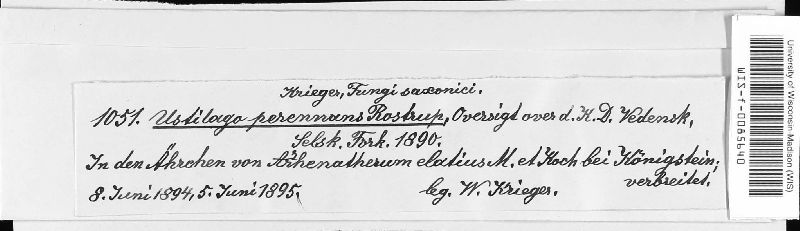 Krieger, Fungi saxonici.
1051. Ustilago perennans Rostrup, Oversigt over d. K. D. Vedensk,
Selsk. Fork. 1890.
In den Ährchen von Arrhenatherum elatius M. et Koch bei Königstein;
verbreitet.
8. Juni 1894, 5. Juni 1895.
lg. W. Krieger.
University of Wisconsin Madison (WIS)
WIS-f-0065640